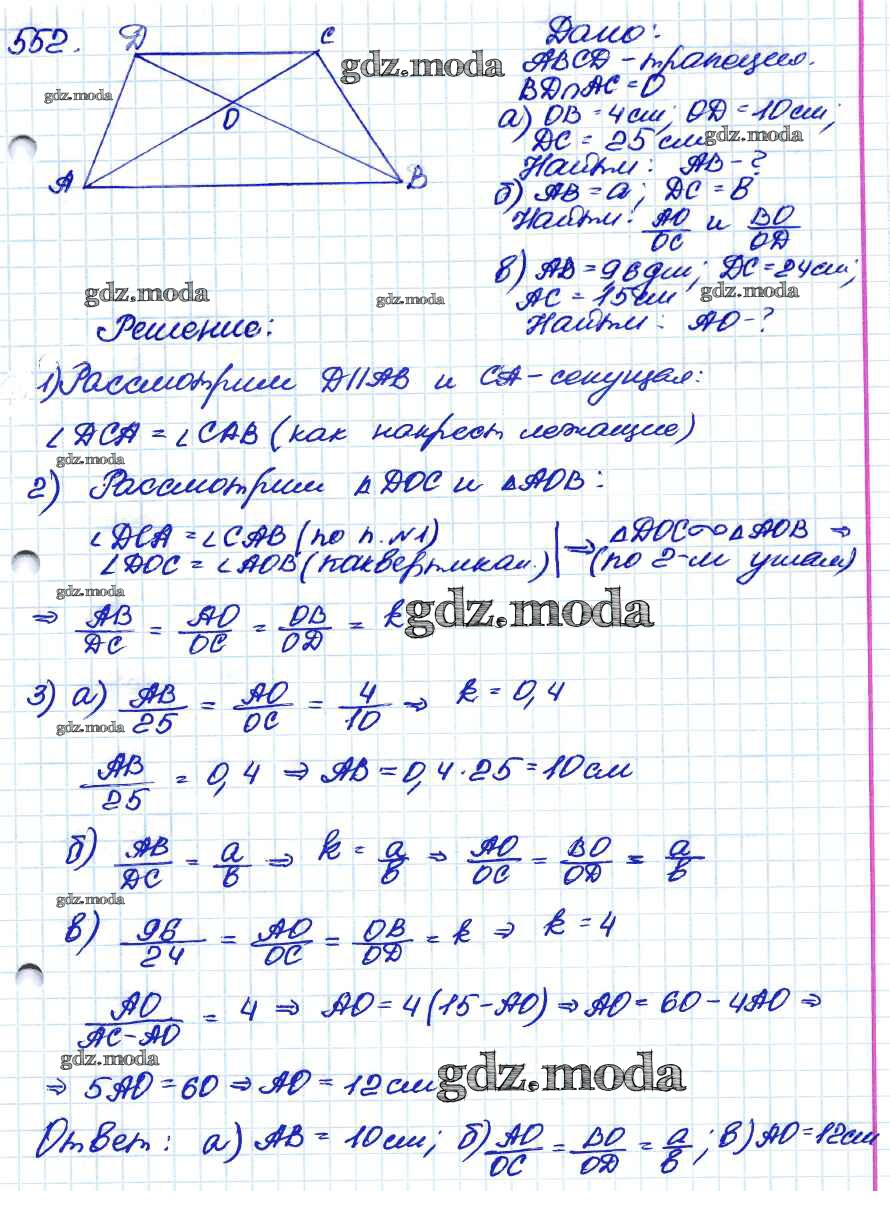 552.
D C
O
A B
gdz.moda
gdz.moda
Дано:
ABCD - трапеция.
BD∩AC = O
а) OB = 4см; OD = 10см;
DC = 25 см
gdz.moda
Найти: AB - ?
б) AB = a; DC = B
Найти: AO/OC и BO/OD
в) AB = 96дм; DC = 24см;
AC = 15см
gdz.moda
Найти: AO - ?
gdz.moda
gdz.moda
Решение:
1) Рассмотрим D||AB и CA - секущая:
∠DCA = ∠CAB (как накрест лежащие)
gdz.moda
2) Рассмотрим △DOC и △AOB:
∠DCA = ∠CAB (по п. N1)
∠DOC = ∠AOB (как вертикал.) | ⇒ △DOC ∾ △AOB ⇒ (по 2-м углам)
gdz.moda
⇒ AB/DC = AO/OC = OB/OD = k
gdz.moda
3) а) AB/25 = AO/OC = 4/10 ⇒ k = 0,4
gdz.moda
AB/25 = 0,4 ⇒ AB = 0,4 · 25 = 10см
б) AB/DC = a/B ⇒ k = a/B ⇒ AO/OC = BO/OD = a/B
gdz.moda
в) 96/24 = AO/OC = OB/OD = k ⇒ k = 4
AO/AC - AO = 4 ⇒ AO = 4(15 - AO) ⇒ AO = 60 - 4AO ⇒
gdz.moda
⇒ 5AO = 60 ⇒ AO = 12см
gdz.moda
Ответ: а) AB = 10см; б) AO/OC = BO/OD = a/B; в) AO = 12см